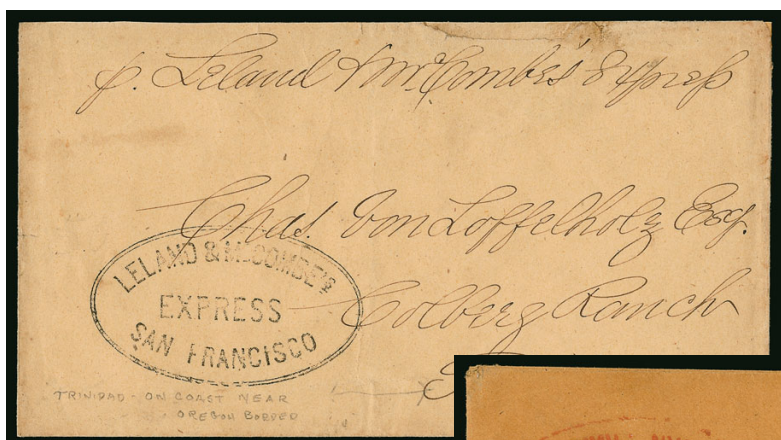 p. Leland & McCombe's Express
Chas. Von Loffelholz Esq.
Colberg Ranch
LELAND & McCOMBE'S
EXPRESS
SAN FRANCISCO
TRINIDAD - ON COAST NEAR
OREGON BORDER